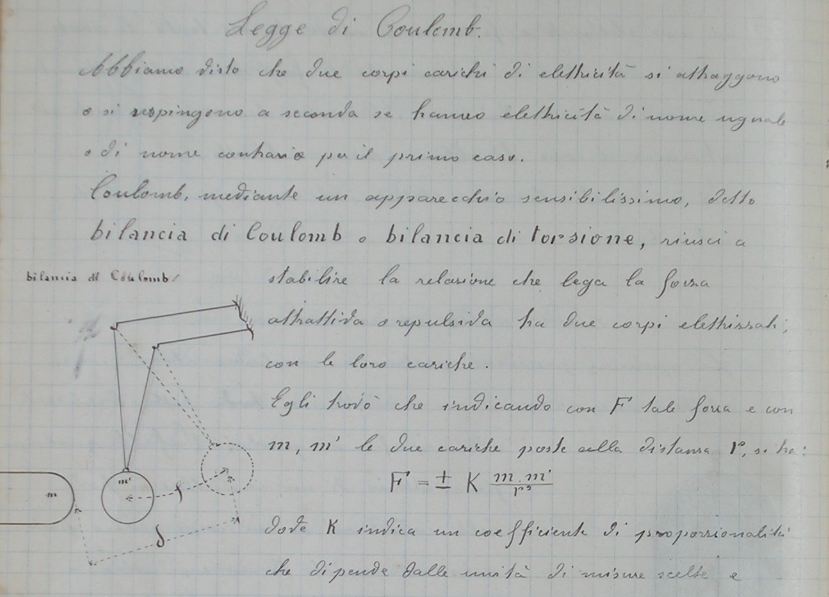 Legge di Coulomb.
Abbiamo visto che due corpi carichi di elettricità si attraggono
o si respingono a seconda se hanno elettricità di nome uguale
o di nome contrario per il primo caso.
Coulomb, mediante un apparecchio sensibilissimo, detto
bilancia di Coulomb o bilancia di torsione, riuscì a
bilancia di Coulomb
stabilire la relazione che lega la forza
attrattiva o repulsiva tra due corpi elettrizzati,
con le loro cariche.
Egli trovò che indicando con F tale forza e con
m, m' le due cariche poste alla distanza r, si ha:
F = ± K m . m' / r²
dove K indica un coefficiente di proporzionalità
che dipende dalle unità di misure scelte e
m
m'
f
δ